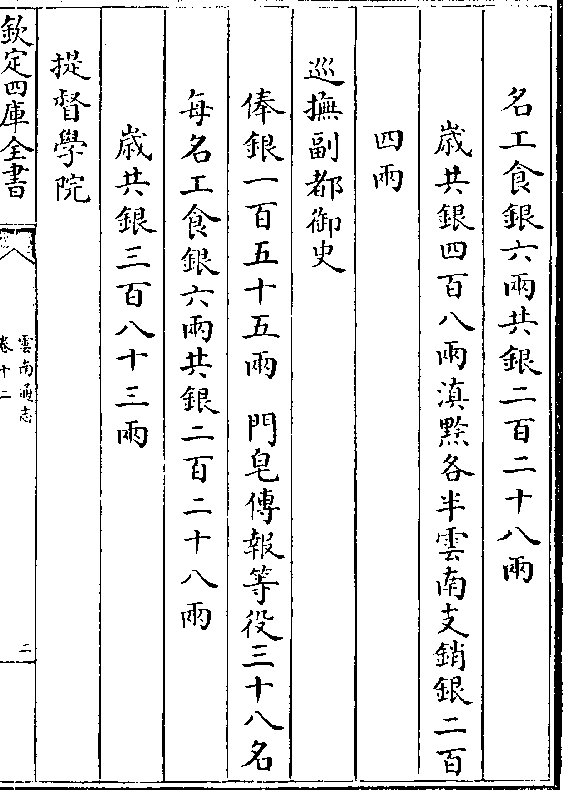 名工食銀六兩共銀二百二十八兩
歲共銀四百八兩滇黔各半雲南支銷銀二百
四兩
巡撫副都御史
俸銀一百五十五兩　門皂傳報等役三十八名
每名工食銀六兩共銀二百二十八兩
歲共銀三百八十三兩
提督學院
欽定四庫全書
雲南通志
卷十二
二